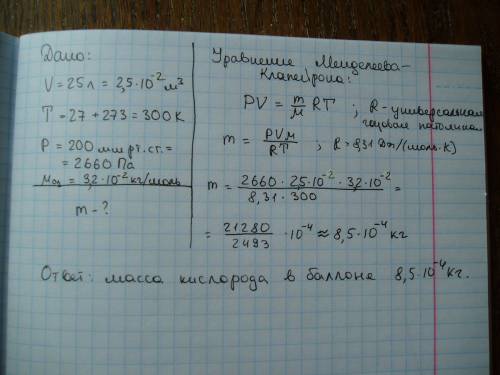 Дано:
V = 25 л = 2,5·10⁻² м³
T = 27 + 273 = 300 K
P = 200 мм рт. ст. =
= 2660 Па
μO₂ = 3,2·10⁻² кг/моль
m - ?
Уравнение Менделеева-
Клапейрона:
PV = m/μ RT ; R - универсальная
газовая
m = PVμ/RT ; R = 8,31 Дж/(моль·К)
m = 2660 · 2,5·10⁻² · 3,2·10⁻² / 8,31 · 300 =
= 21280/2493 · 10⁻⁴ ≈ 8,5·10⁻⁴ кг
Ответ: масса кислорода в баллоне 8,5·10⁻⁴ кг.